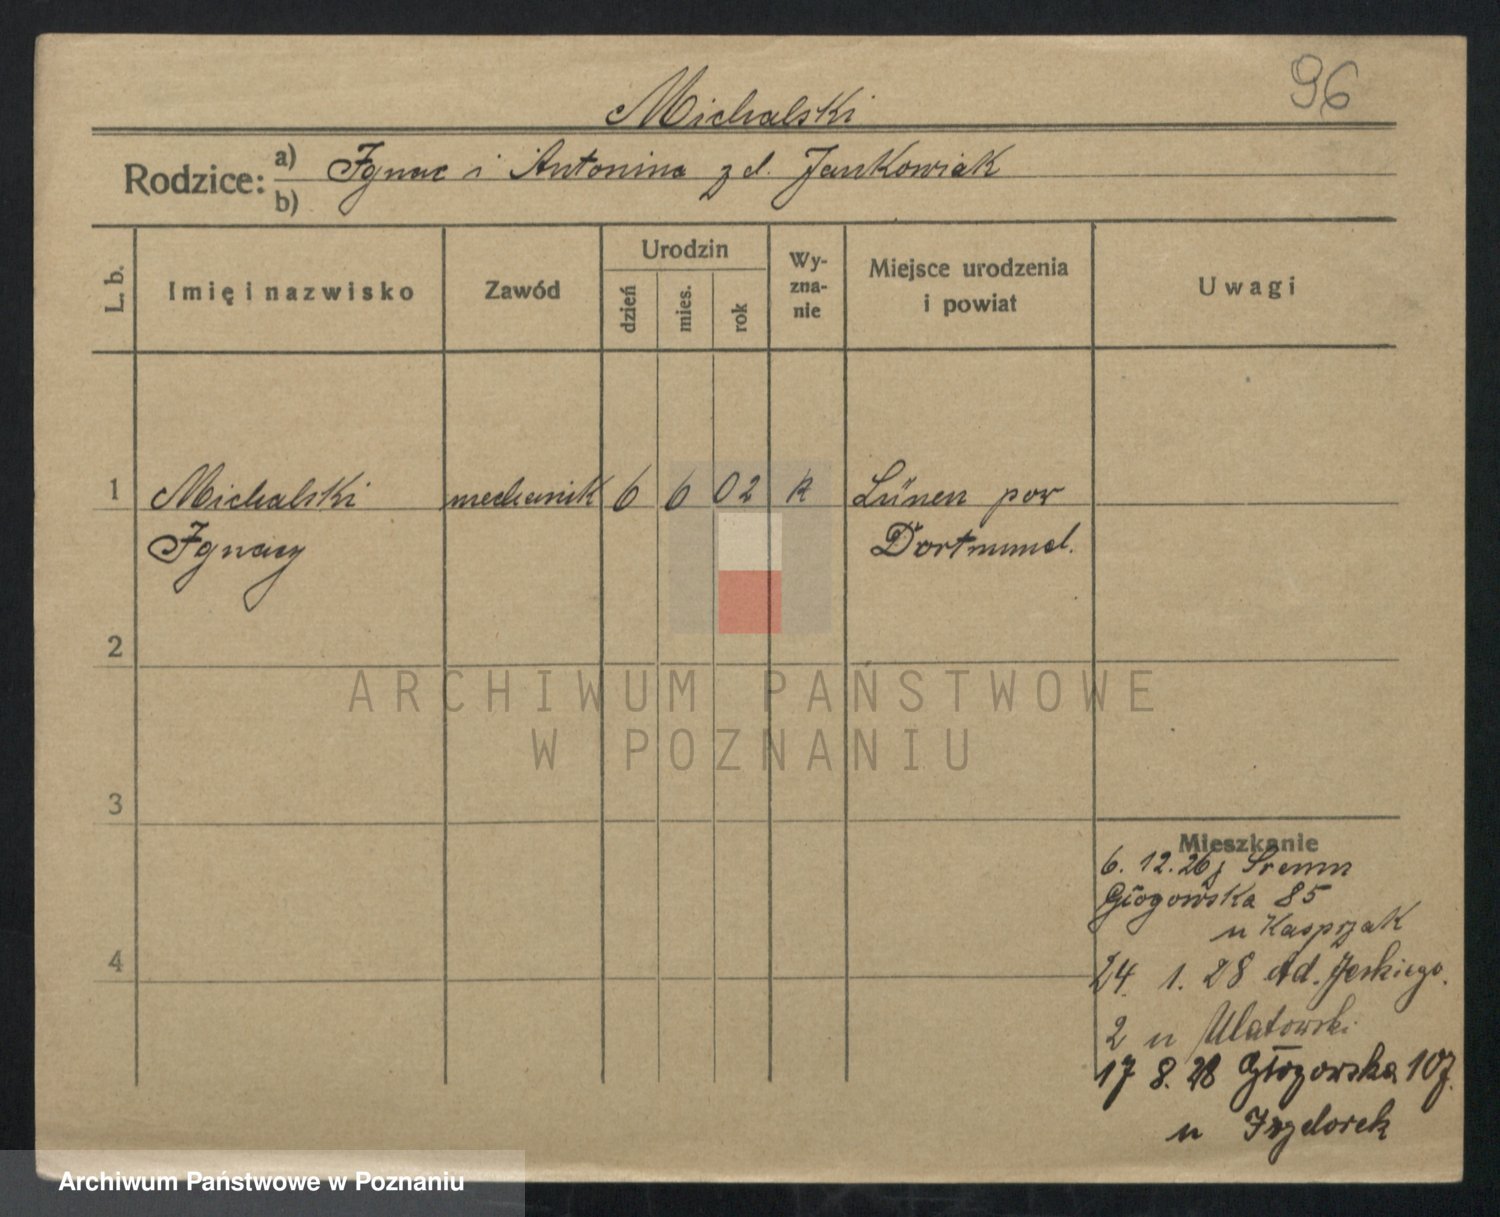 96
Michalski
Rodzice: a) Ignac i Antonina z d. Jankowiak
b)
L. b.
Imię i nazwisko
Zawód
Urodzin
dzień
mies.
rok
Wy-
zna-
nie
Miejsce urodzenia
i powiat
Uwagi
1 Michalski mechanik 6 6 02 k Lünen pow
Ignacy Dortmund.
2
ARCHIWUM PAŃSTWOWE
W POZNANIU
3
Mieszkanie
6. 12. 26 z Śremu
Głogowska 85
u Kasprzak
4
24. 1. 28 Ad. Jeskiego.
2 u Ulatowski
17 8. 28 Głogowska 107.
u Izydorek
Archiwum Państwowe w Poznaniu